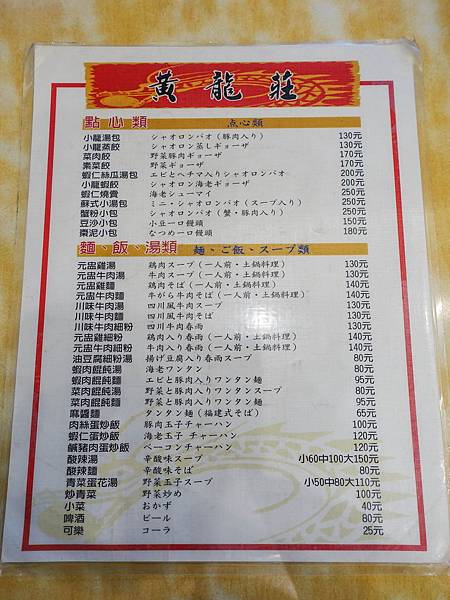 黃龍莊
點心類 点心類
小龍湯包 シャオロンパオ(豚肉入り) 130元
小龍蒸餃 シャオロン蒸しギョーザ 130元
菜肉餃 野菜豚肉ギョーザ 170元
素菜餃 野菜ギョーザ 170元
蝦仁絲瓜湯包 エビとヘチマ入りシャオロンパオ 200元
小龍蝦餃 シャオロン海老ギョーザ 200元
蝦仁燒賣 海老シューマイ 250元
蘇式小湯包 ミニ・シャオロンパオ(スープ入り) 250元
蟹粉小包 シャオロンパオ(蟹・豚肉入り) 250元
豆沙小包 小豆一口饅頭 150元
棗泥小包 なつめ一口饅頭 180元
麵、飯、湯類 麺、ご飯、スープ類
元盅雞湯 鶏肉スープ(一人前・土鍋料理) 130元
元盅牛肉湯 牛肉スープ(一人前・土鍋料理) 130元
元盅雞麵 鶏肉そば(一人前・土鍋料理) 140元
元盅牛肉麵 牛がら牛肉そば(一人前・土鍋料理) 140元
川味牛肉湯 四川風牛肉スープ 130元
川味牛肉麵 四川風牛肉そば 130元
川味牛肉細粉 四川牛肉春雨 130元
元盅雞細粉 鶏肉入り春雨(一人前・土鍋料理) 140元
元盅牛肉細粉 牛肉入り春雨(一人前・土鍋料理) 140元
油豆腐細粉湯 揚げ豆腐入り春雨スープ 80元
蝦肉餛飩湯 海老ワンタン 80元
蝦肉餛飩麵 エビと豚肉入りワンタン麺 95元
菜肉餛飩湯 野菜と豚肉入りワンタンスープ 80元
菜肉餛飩麵 野菜と豚肉入りワンタン麺 95元
麻醬麵 タンタン麺(福建式そば) 65元
肉絲蛋炒飯 豚肉玉子チャーハン 100元
蝦仁蛋炒飯 海老玉子 チャーハン 120元
鹹豬肉蛋炒飯 ベーコンチャーハン 120元
酸辣湯 辛酸味スープ 小60中100大150元
酸辣麵 辛酸味そば 80元
青菜蛋花湯 野菜玉子スープ 小50中80大110元
炒青菜 野菜炒め 100元
小菜 おかず 40元
啤酒 ビール 80元
可樂 コーラ 25元